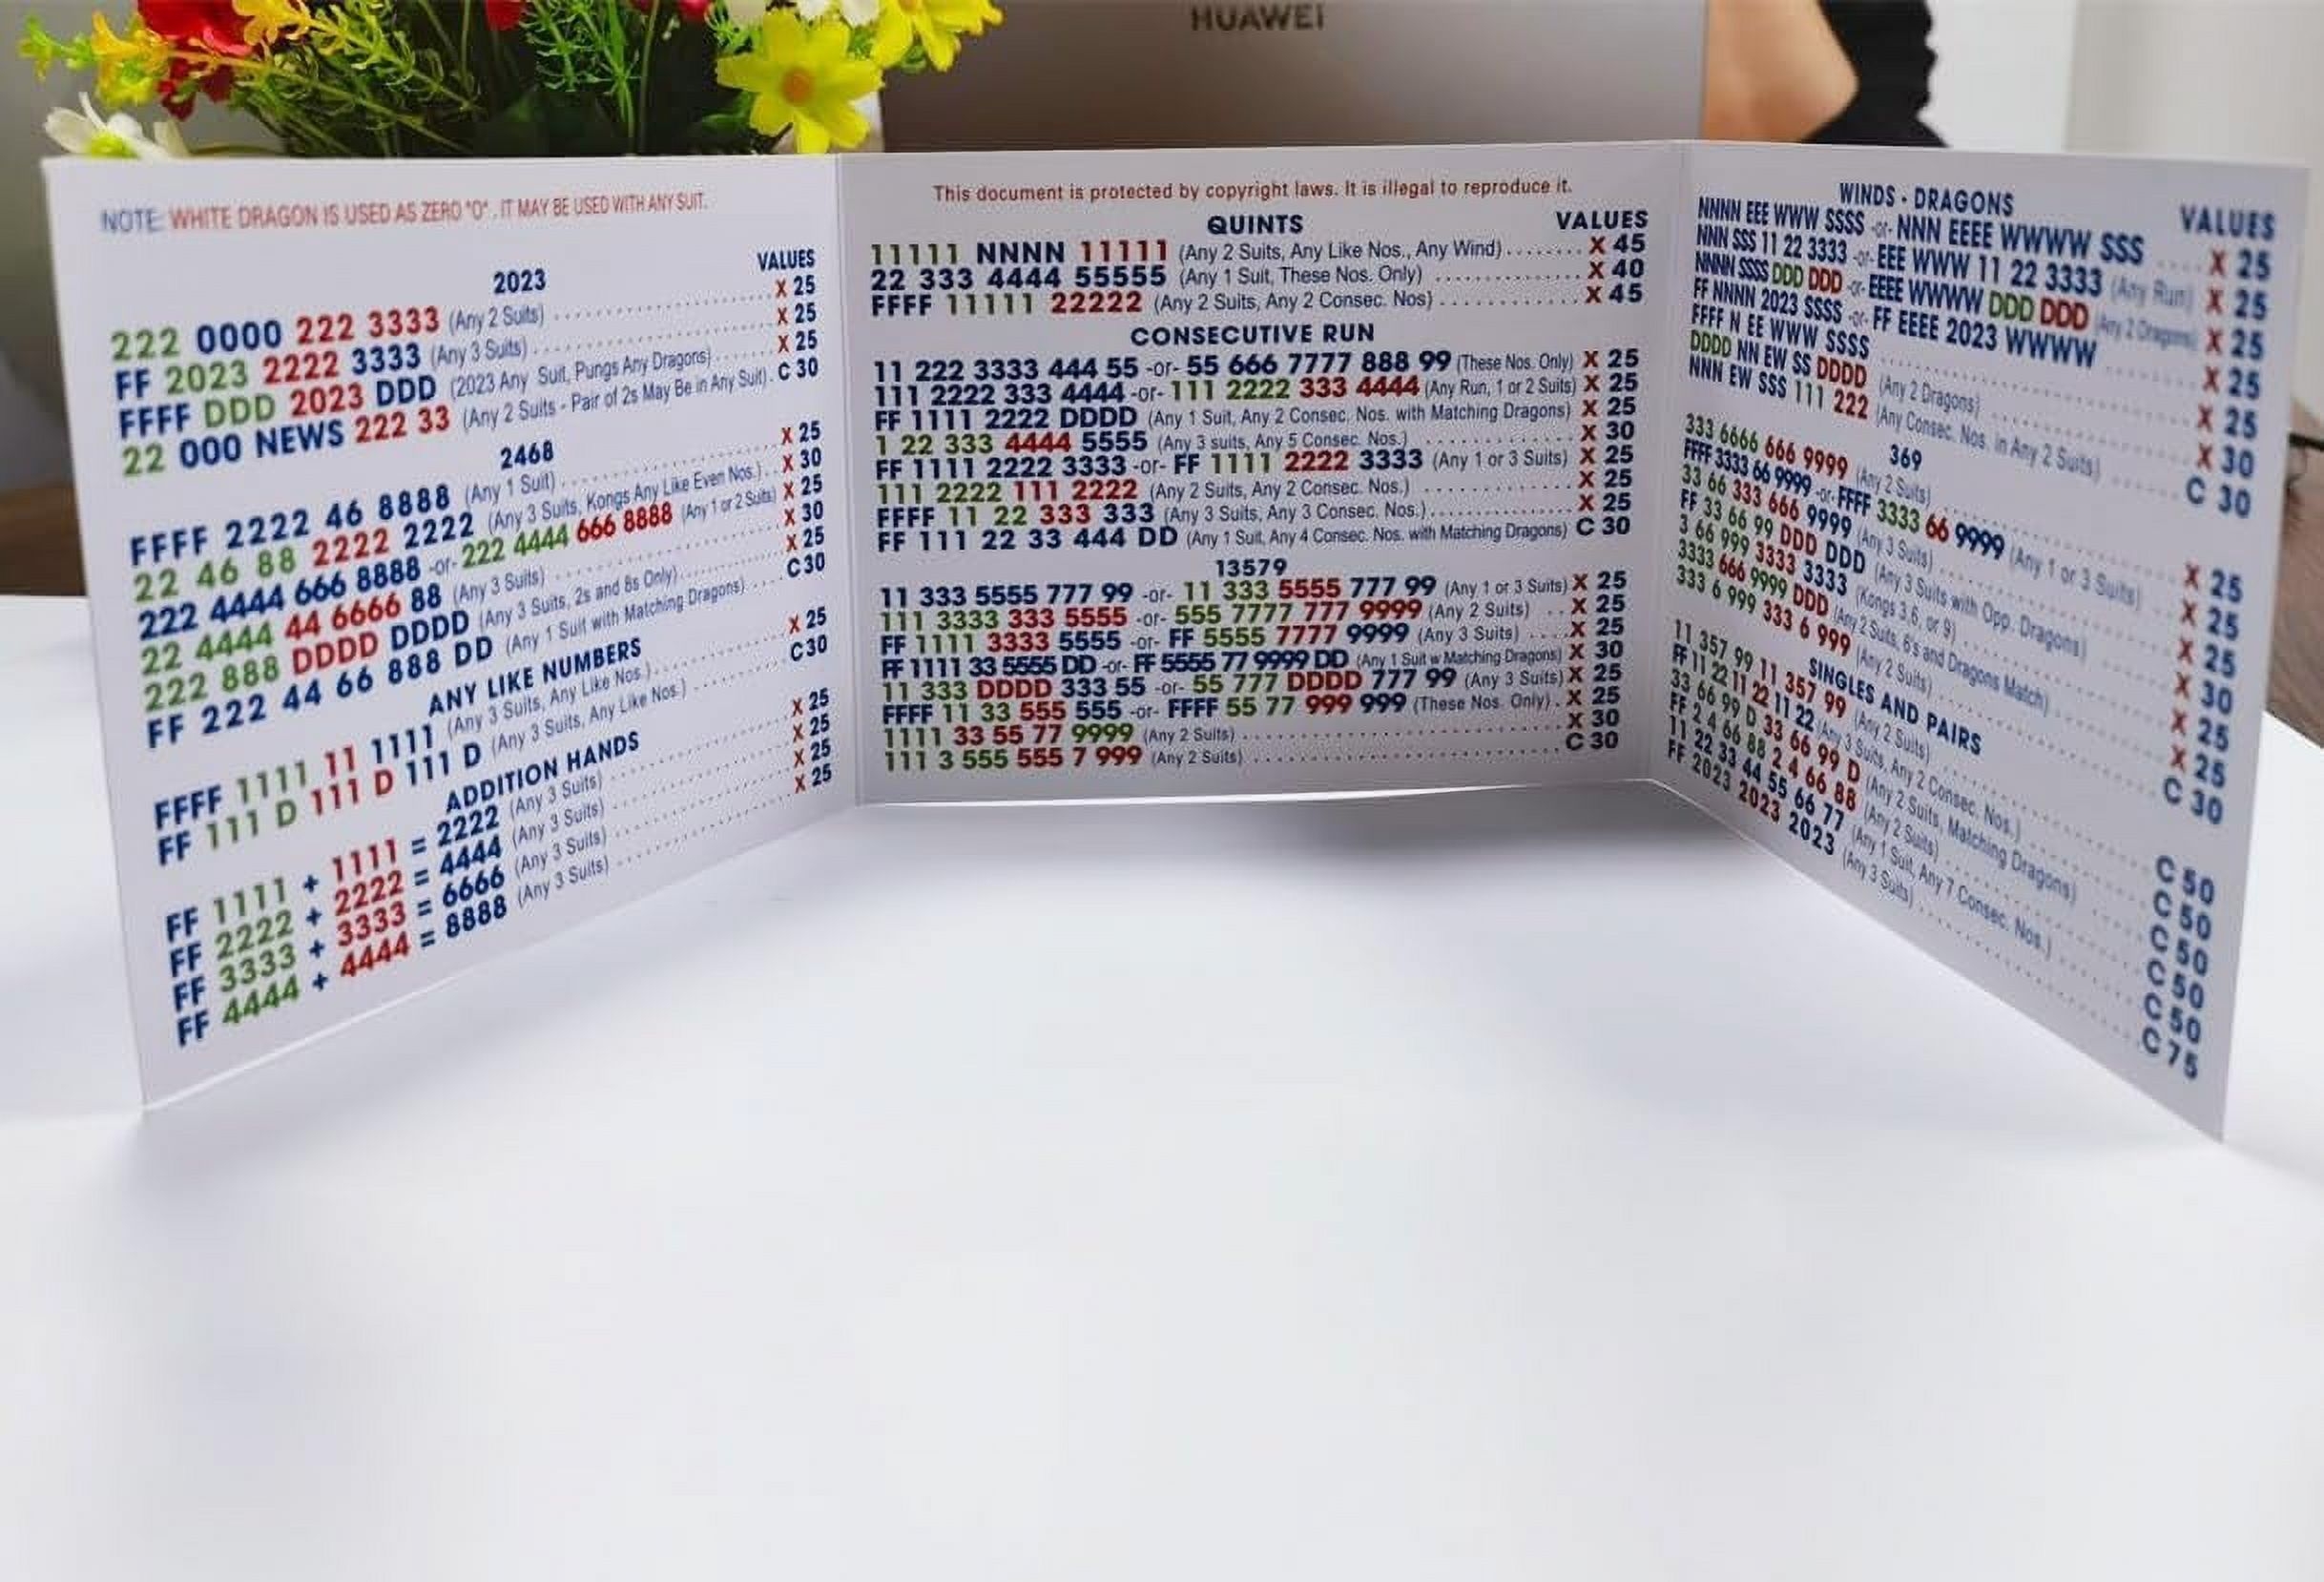 HUAWEI
NOTE: WHITE DRAGON IS USED AS ZERO "0". IT MAY BE USED WITH ANY SUIT.
2023 VALUES
222 0000 222 3333 (Any 2 Suits) X 25
FF 2023 2222 3333 (Any 3 Suits) X 25
FFFF DDD 2023 DDD (2023 Any Suit, Pungs Any Dragons) X 25
22 000 NEWS 222 33 (Any 2 Suits - Pair of 2s May Be in Any Suit) C 30
2468
FFFF 2222 46 8888 (Any 1 Suit) X 25
22 46 88 2222 2222 (Any 3 Suits, Kongs Any Like Even Nos.) X 30
222 4444 666 8888 -or- 222 4444 666 8888 (Any 1 or 2 Suits) X 25
22 4444 44 6666 88 (Any 3 Suits) X 30
222 888 DDDD DDDD (Any 3 Suits, 2s and 8s Only) X 25
FF 222 44 66 888 DD (Any 1 Suit with Matching Dragons) C 30
ANY LIKE NUMBERS
FFFF 1111 11 1111 (Any 3 Suits, Any Like Nos.) X 25
FF 111 D 111 D 111 D (Any 3 Suits, Any Like Nos.) C 30
ADDITION HANDS
FF 1111 + 1111 = 2222 (Any 3 Suits) X 25
FF 2222 + 2222 = 4444 (Any 3 Suits) X 25
FF 3333 + 3333 = 6666 (Any 3 Suits) X 25
FF 4444 + 4444 = 8888 (Any 3 Suits) X 25
This document is protected by copyright laws. It is illegal to reproduce it.
QUINTS VALUES
11111 NNNN 11111 (Any 2 Suits, Any Like Nos., Any Wind) X 45
22 333 4444 55555 (Any 1 Suit, These Nos. Only) X 40
FFFF 11111 22222 (Any 2 Suits, Any 2 Consec. Nos) X 45
CONSECUTIVE RUN
11 222 3333 444 55 -or- 55 666 7777 888 99 (These Nos. Only) X 25
111 2222 333 4444 -or- 111 2222 333 4444 (Any Run, 1 or 2 Suits) X 25
FF 1111 2222 DDDD (Any 1 Suit, Any 2 Consec. Nos. with Matching Dragons) X 25
1 22 333 4444 5555 (Any 3 suits, Any 5 Consec. Nos.) X 30
FF 1111 2222 3333 -or- FF 1111 2222 3333 (Any 1 or 3 Suits) X 25
111 2222 111 2222 (Any 2 Suits, Any 2 Consec. Nos.) X 25
FFFF 11 22 333 333 (Any 3 Suits, Any 3 Consec. Nos.) X 25
FF 111 22 33 444 DD (Any 1 Suit, Any 4 Consec. Nos. with Matching Dragons) C 30
13579
11 333 5555 777 99 -or- 11 333 5555 777 99 (Any 1 or 3 Suits) X 25
111 3333 333 5555 -or- 555 7777 777 9999 (Any 2 Suits) X 25
FF 1111 3333 5555 -or- FF 5555 7777 9999 (Any 3 Suits) X 25
FF 1111 33 5555 DD -or- FF 5555 77 9999 DD (Any 1 Suit w Matching Dragons) X 30
11 333 DDDD 333 55 -or- 55 777 DDDD 777 99 (Any 3 Suits) X 25
FFFF 11 33 555 555 -or- FFFF 55 77 999 999 (These Nos. Only) X 25
1111 33 55 77 9999 (Any 2 Suits) X 30
111 3 555 555 7 999 (Any 2 Suits) C 30
WINDS - DRAGONS VALUES
NNNN EEE WWW SSSS -or- NNN EEEE WWWW SSS X 25
NNN SSS 11 22 3333 -or- EEE WWW 11 22 3333 (Any Run) X 25
NNNN SSSS DDD DDD -or- EEEE WWWW DDD DDD (Any 2 Dragons) X 25
FF NNNN 2023 SSSS -or- FF EEEE 2023 WWWW X 25
FFFF N EE WWW SSSS X 25
DDDD NN EW SS DDDD (Any 2 Dragons) X 30
NNN EW SSS 111 222 (Any Consec. Nos. in Any 2 Suits) C 30
369
333 6666 666 9999 (Any 2 Suits) X 25
FFFF 3333 66 9999 -or- FFFF 3333 66 9999 (Any 1 or 3 Suits) X 25
33 66 333 666 9999 (Any 3 Suits) X 25
FF 33 66 99 DDD DDD (Any 3 Suits with Opp. Dragons) X 30
3 66 999 3333 3333 (Kongs 3,6, or 9) X 25
3333 666 9999 DDD (Any 2 Suits, 6's and Dragons Match) X 25
333 6 999 333 6 999 (Any 2 Suits) C 30
SINGLES AND PAIRS
11 357 99 11 357 99 (Any 2 Suits) C 50
FF 11 22 11 22 11 22 (Any 3 Suits, Any 2 Consec. Nos.) C 50
33 66 99 D 33 66 99 D (Any 2 Suits, Matching Dragons) C 50
FF 2 4 66 88 2 4 66 88 (Any 2 Suits) C 50
11 22 33 44 55 66 77 (Any 1 Suit, Any 7 Consec. Nos.) C 50
FF 2023 2023 2023 (Any 3 Suits) C 75